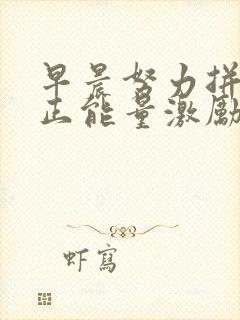 早晨努力拼
正能量激勵
虾寫